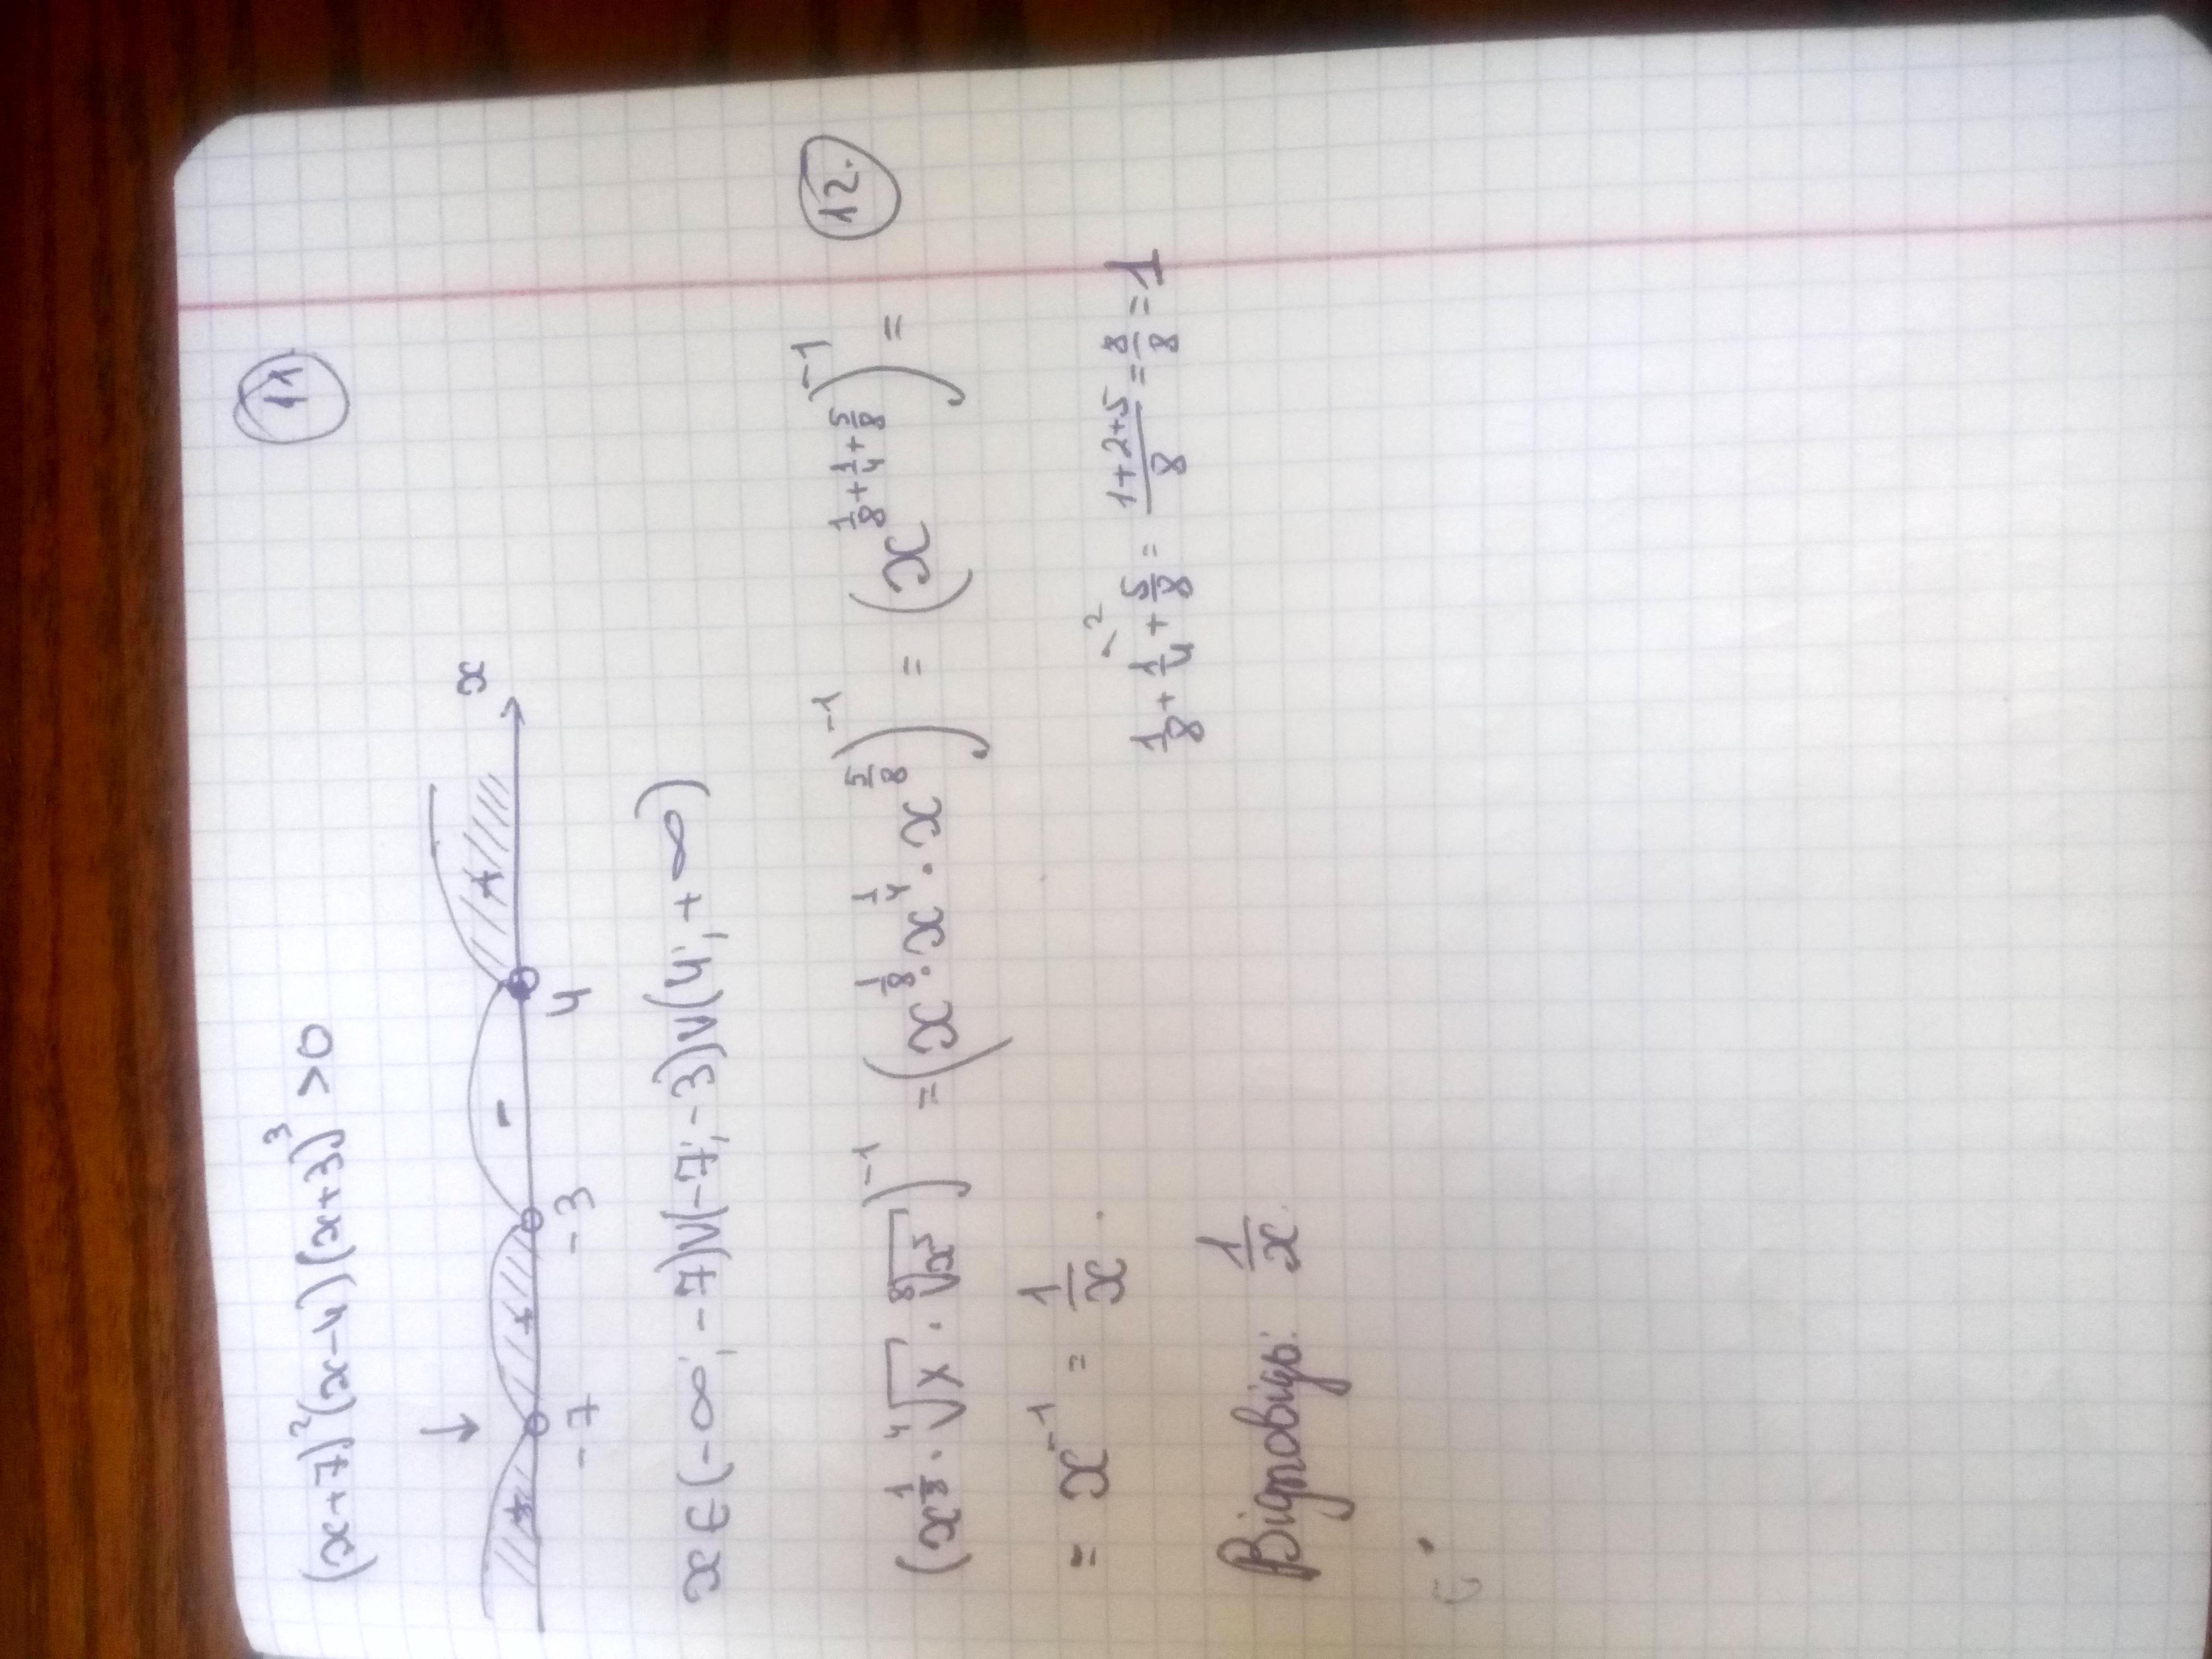 (x+7)²(x-4)(x+3)³ >0 11.
+ + - + x
-7 -3 4
x∈(-∞;-7)∪(-7;-3)∪(4;+∞)
(x^{1/8}·⁴√x·⁸√x⁵)⁻¹ =(x^{1/8}·x^{1/4}·x^{5/8})⁻¹ = (x^{1/8+1/4+5/8})⁻¹ = 12.
= x⁻¹ = 1/x.
1/8+1/4²+5/8 = (1+2+5)/8=8/8=1
Відповідь: 1/x.